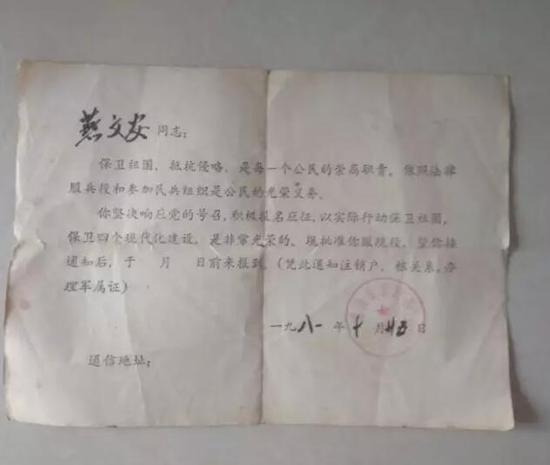 燕文安同志：
保卫祖国，抵抗侵略，是每一个公民的崇高职责。依照法律
服兵役和参加民兵组织是公民的光荣义务。
你坚决响应党的号召，积极报名应征，以实际行动保卫祖国，
保卫四个现代化建设，是非常光荣的，现批准你服现役，望你接
通知后，于 月 日前来报到。（凭此通知注销户、粮关系，办
理军属证）
一九八一年十月廿五日
通信地址：